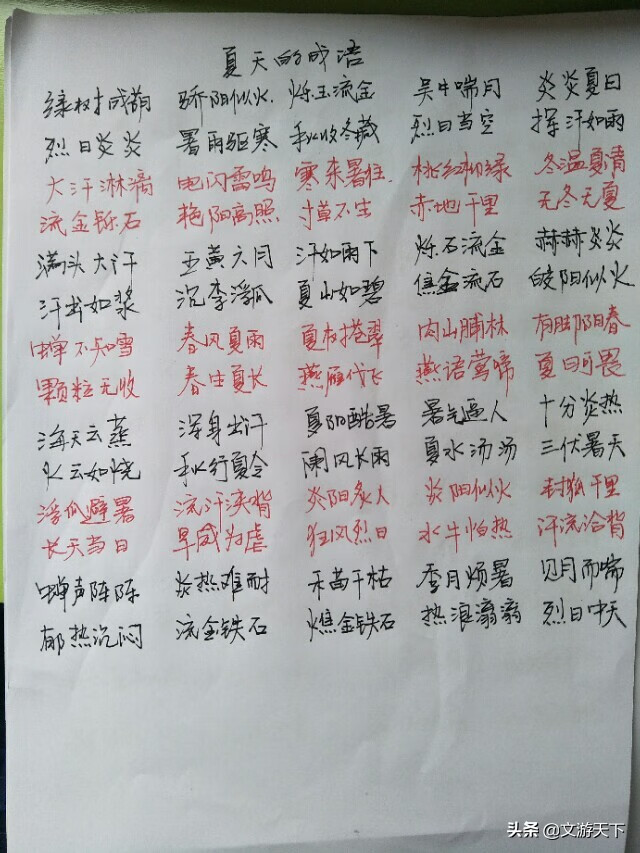 夏天的成语
绿树成荫 骄阳似火 烁玉流金 吴牛喘月 炎炎夏日
烈日炎炎 暑雨驱寒 秋收冬藏 烈日当空 挥汗如雨
大汗淋漓 电闪雷鸣 寒来暑往 桃红柳绿 冬温夏凊
流金铄石 艳阳高照 寸草不生 赤地千里 无冬无夏
满头大汗 五黄六月 汗如雨下 烁石流金 赫赫炎炎
汗出如浆 沉李浮瓜 夏山如碧 焦金流石 皎阳似火
蝉不知雪 春风夏雨 夏树拖翠 肉山脯林 有脚阳春
颗粒无收 春生夏长 燕雁代飞 燕语莺啼 夏日可畏
海天云蒸 浑身出汗 夏阳酷暑 暑气逼人 十分炎热
火云如烧 秋行夏令 阑风长雨 夏水汤汤 三伏暑天
浮瓜避暑 流汗浃背 炎阳炙人 炎阳似火 封狐千里
长天当日 旱威为虐 狂风烈日 水牛怕热 汗流洽背
蝉声阵阵 炎热难耐 禾苗干枯 季月烦暑 见月而喘
郁热沉闷 流金铁石 燋金铁石 热浪滚滚 烈日中天
头条 @文游天下